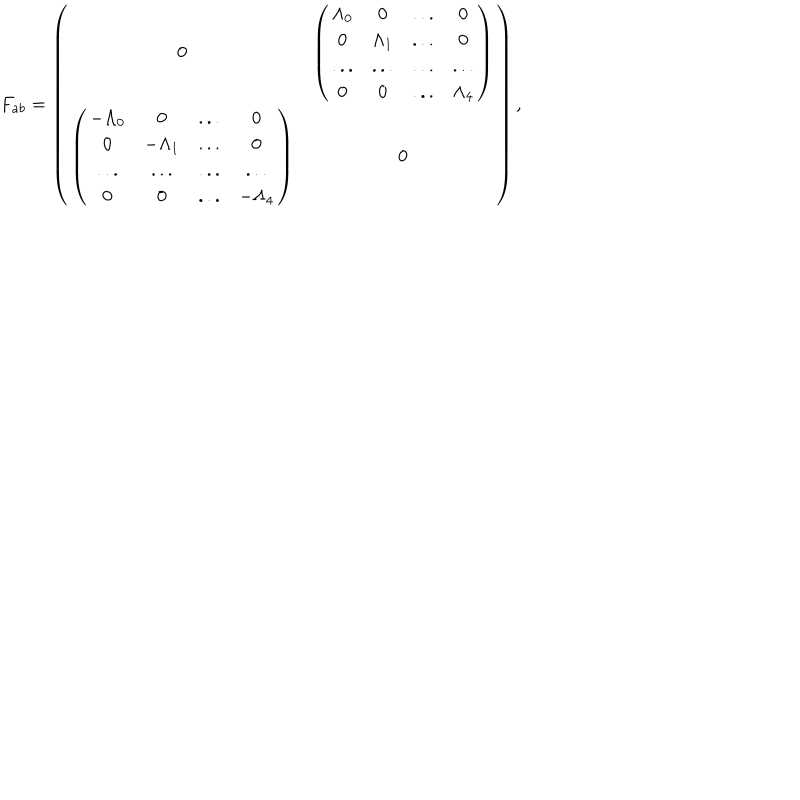 F_{ab} = \left( \begin{array}{cc} 0 & \left( \begin{array}{cccc} \Lambda_0 & 0 & \ldots & 0 \\ 0 & \Lambda_1 & \ldots & 0 \\ \ldots & \ldots & \ldots & \ldots \\ 0 & 0 & \ldots & \Lambda_4 \end{array} \right) \\ \left( \begin{array}{cccc} -\Lambda_0 & 0 & \ldots & 0 \\ 0 & -\Lambda_1 & \ldots & 0 \\ \ldots & \ldots & \ldots & \ldots \\ 0 & 0 & \ldots & -\Lambda_4 \end{array} \right) & 0 \end{array} \right),